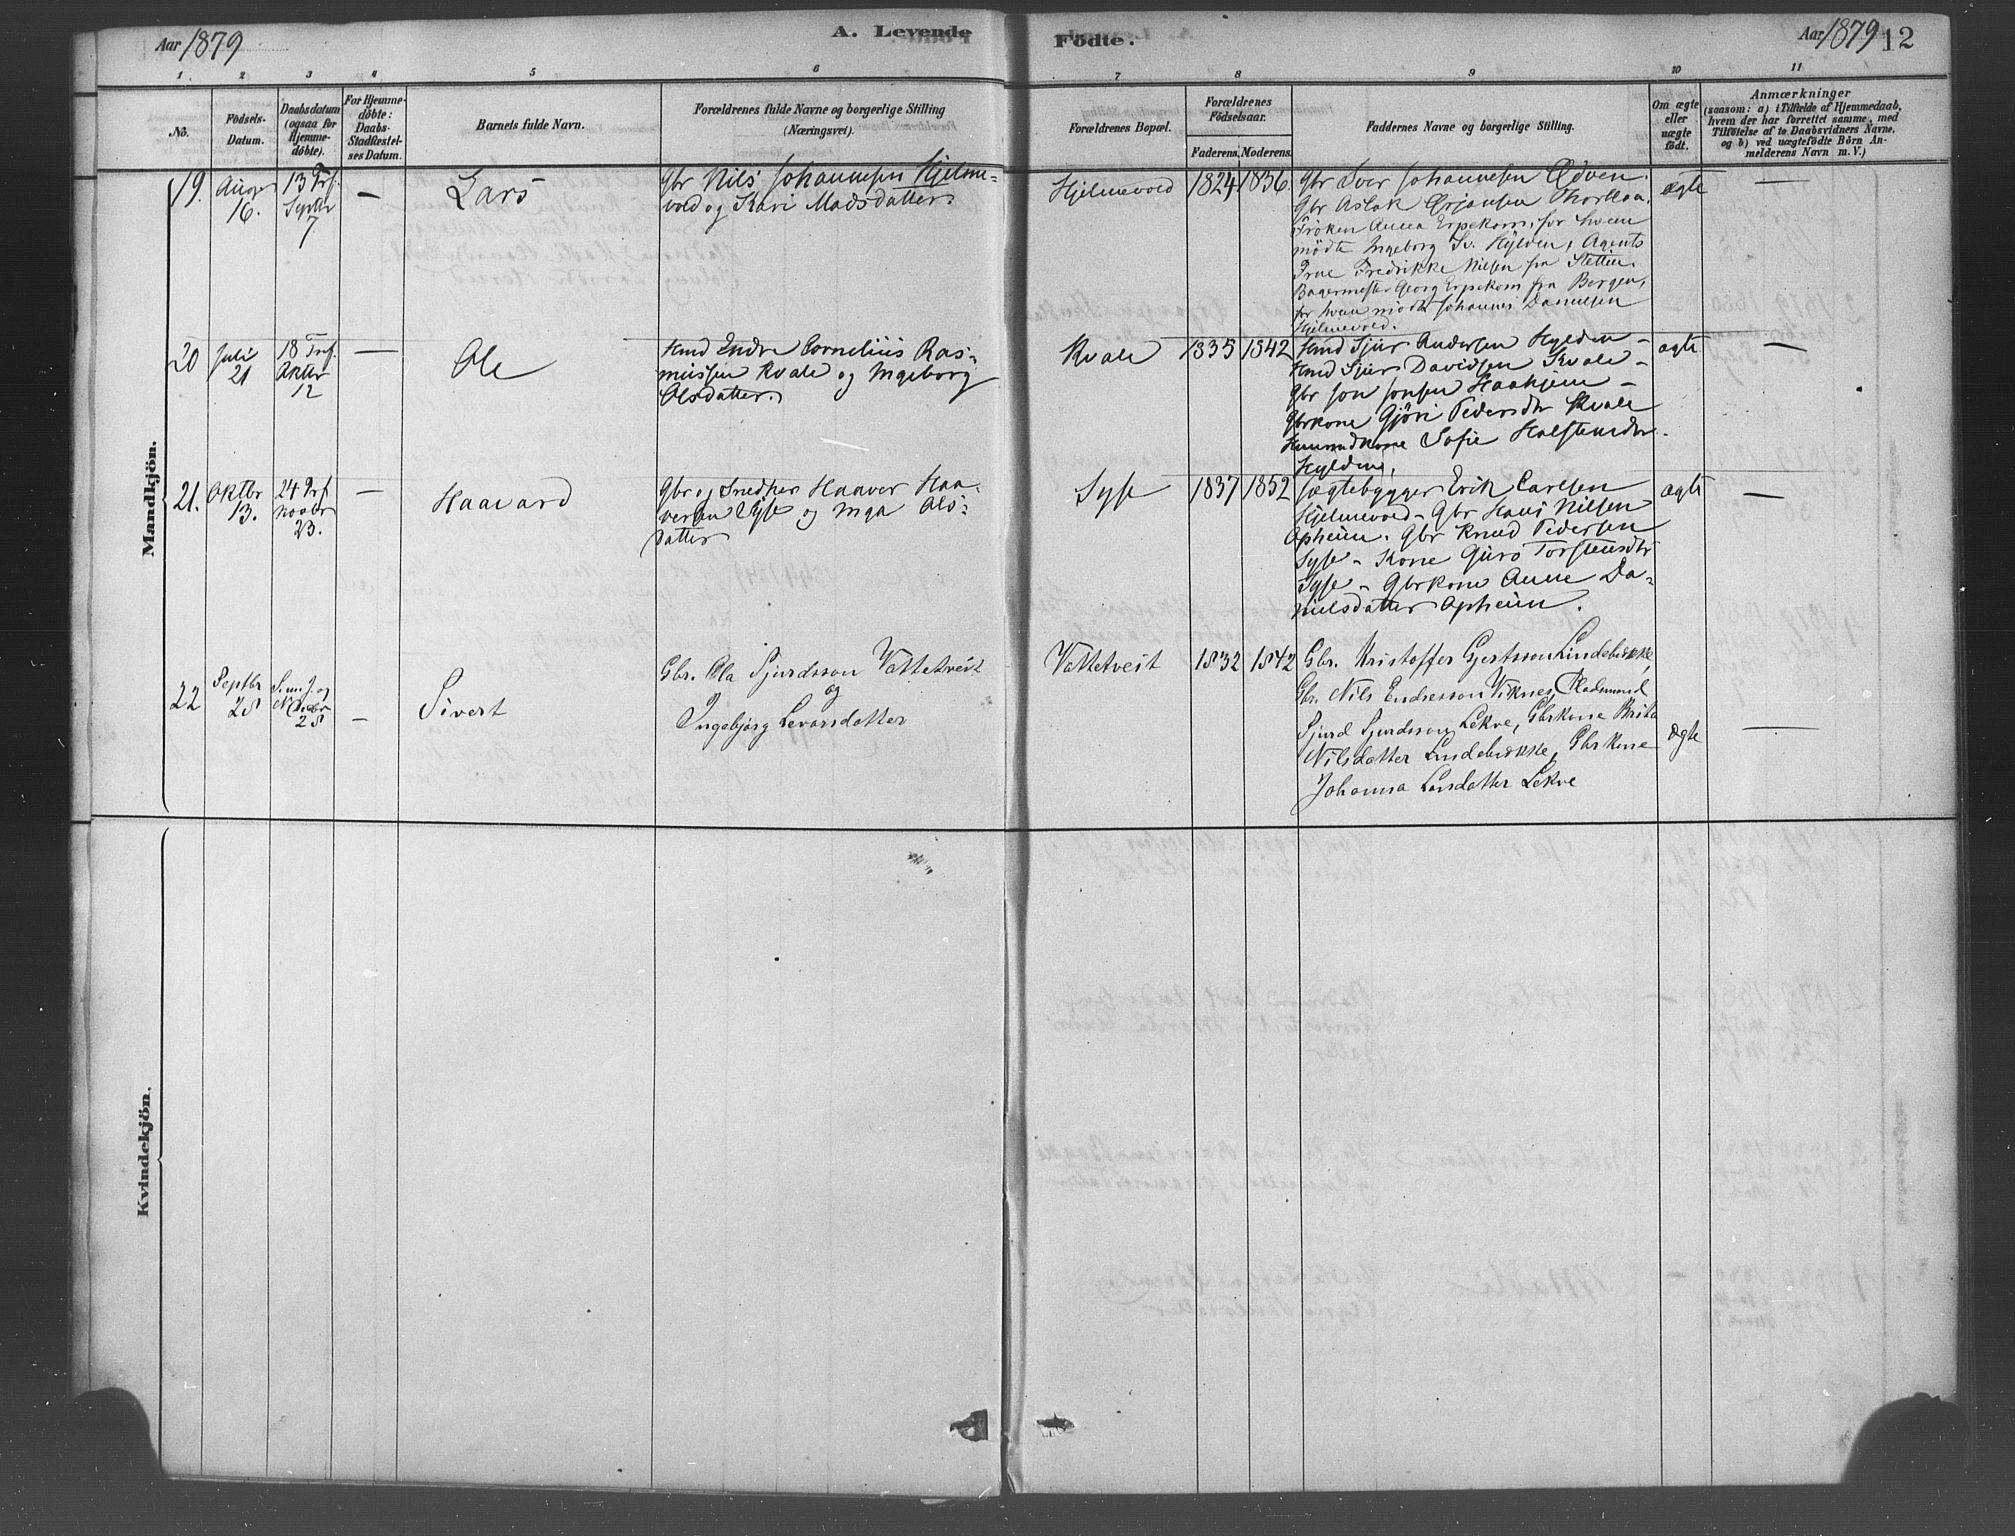 Aar 1879
A. Levende
Födte.
Aar 1879
12
1.
2
3
4
5
6
7
8
9
10
11
No.
Födsels-
Datum.
Daabsdatum
(ogsaa for
Hjemme-
döbte).
For Hjemme-
döbte:
Daabs-
Stadfæstel-
ses Datum.
Barnets fulde Navn.
Forældrenes fulde Navne og borgerlige Stilling
(Næringsvei).
Forældrenes Bopæl.
Forældrenes
Födselsaar.
Faderens.
Moderens.
Faddernes Navne og borgerlige Stilling.
Om ægte
eller
uægte
födt.
Anmærkninger
(saasom: a) i Tilfælde af Hjemmedaab,
hvem der har forrettet samme, med
Tilföielse af to Daabsvidners Navne,
og b) ved uægtefödte Börn An-
melderens Navn m. V.)
Mandkjön.
19.
Aug
16.
13
Septbr
7
—
Lars
Gbr Nils Johannesen Hjelme-
vold og Kari Madsdatter
Hjelmevold
1824
1836.
Gbr Iver Johannesen Ødven.
Gbr Aslak Ørjansen
Frøken Anna Erpekom, for hvem
mødte Ingeborg Hylden, Agents
Frue Fredrikke Nilsen fra Stettin.
Bagermester Georg Erpekom fra Bergen,
for hvem mødte Johannes Danielsen
Hjelmevold.
ægte
—
20
Juli
21
18
Oktbr
12
—
Ole
Hmd Endre Cornelius Ras-
mussen Kvale og Ingeborg
Olsdatter.
Kvale
1835
1842
Hmd Sjur Andersen Hylden –
Hmd Sjur Davidsen Kvale –
Gbr Jon Jonsen Haaheim –
Gbrkone Gjöri Pedersdtr Kvale
Sofie Halstensdtr.
Hylden,
ægte
—
21.
Oktbr
13.
24
Novbr
23.
—
Haavard
Gbr og Snedker Haaver Haa-
versen Syse og Inga Ols-
datter
Syse
1837
1852
Jægtebygger Erik Carlsen
Hjelmevold – Gbr Hans Nilsen
Opheim. Gbr Knud Pedersen
Syse – Kone Guro Torstensdtr
Syse – Gbrkone Anne Da-
nielsdatter Opheim.
ægte
—
22
Septbr
28
28
–
Sivert
Gbr. Ola Sjurdsson Vattetveit
og
Ingebjørg Levorsdatter
Vattetveit
1832
1842
Gbr. Kristoffer Gjertsson Lindebrekke,
Gbr. Nils Endresson Viknes, Pladsmand
Sjurd Sjurdsson Lekve, Gbrkone Brita
Nilsdatter Lindebrekke, Gbrkone
Johanna Larsdatter Lekve
ægte
—
Kvindekjön.